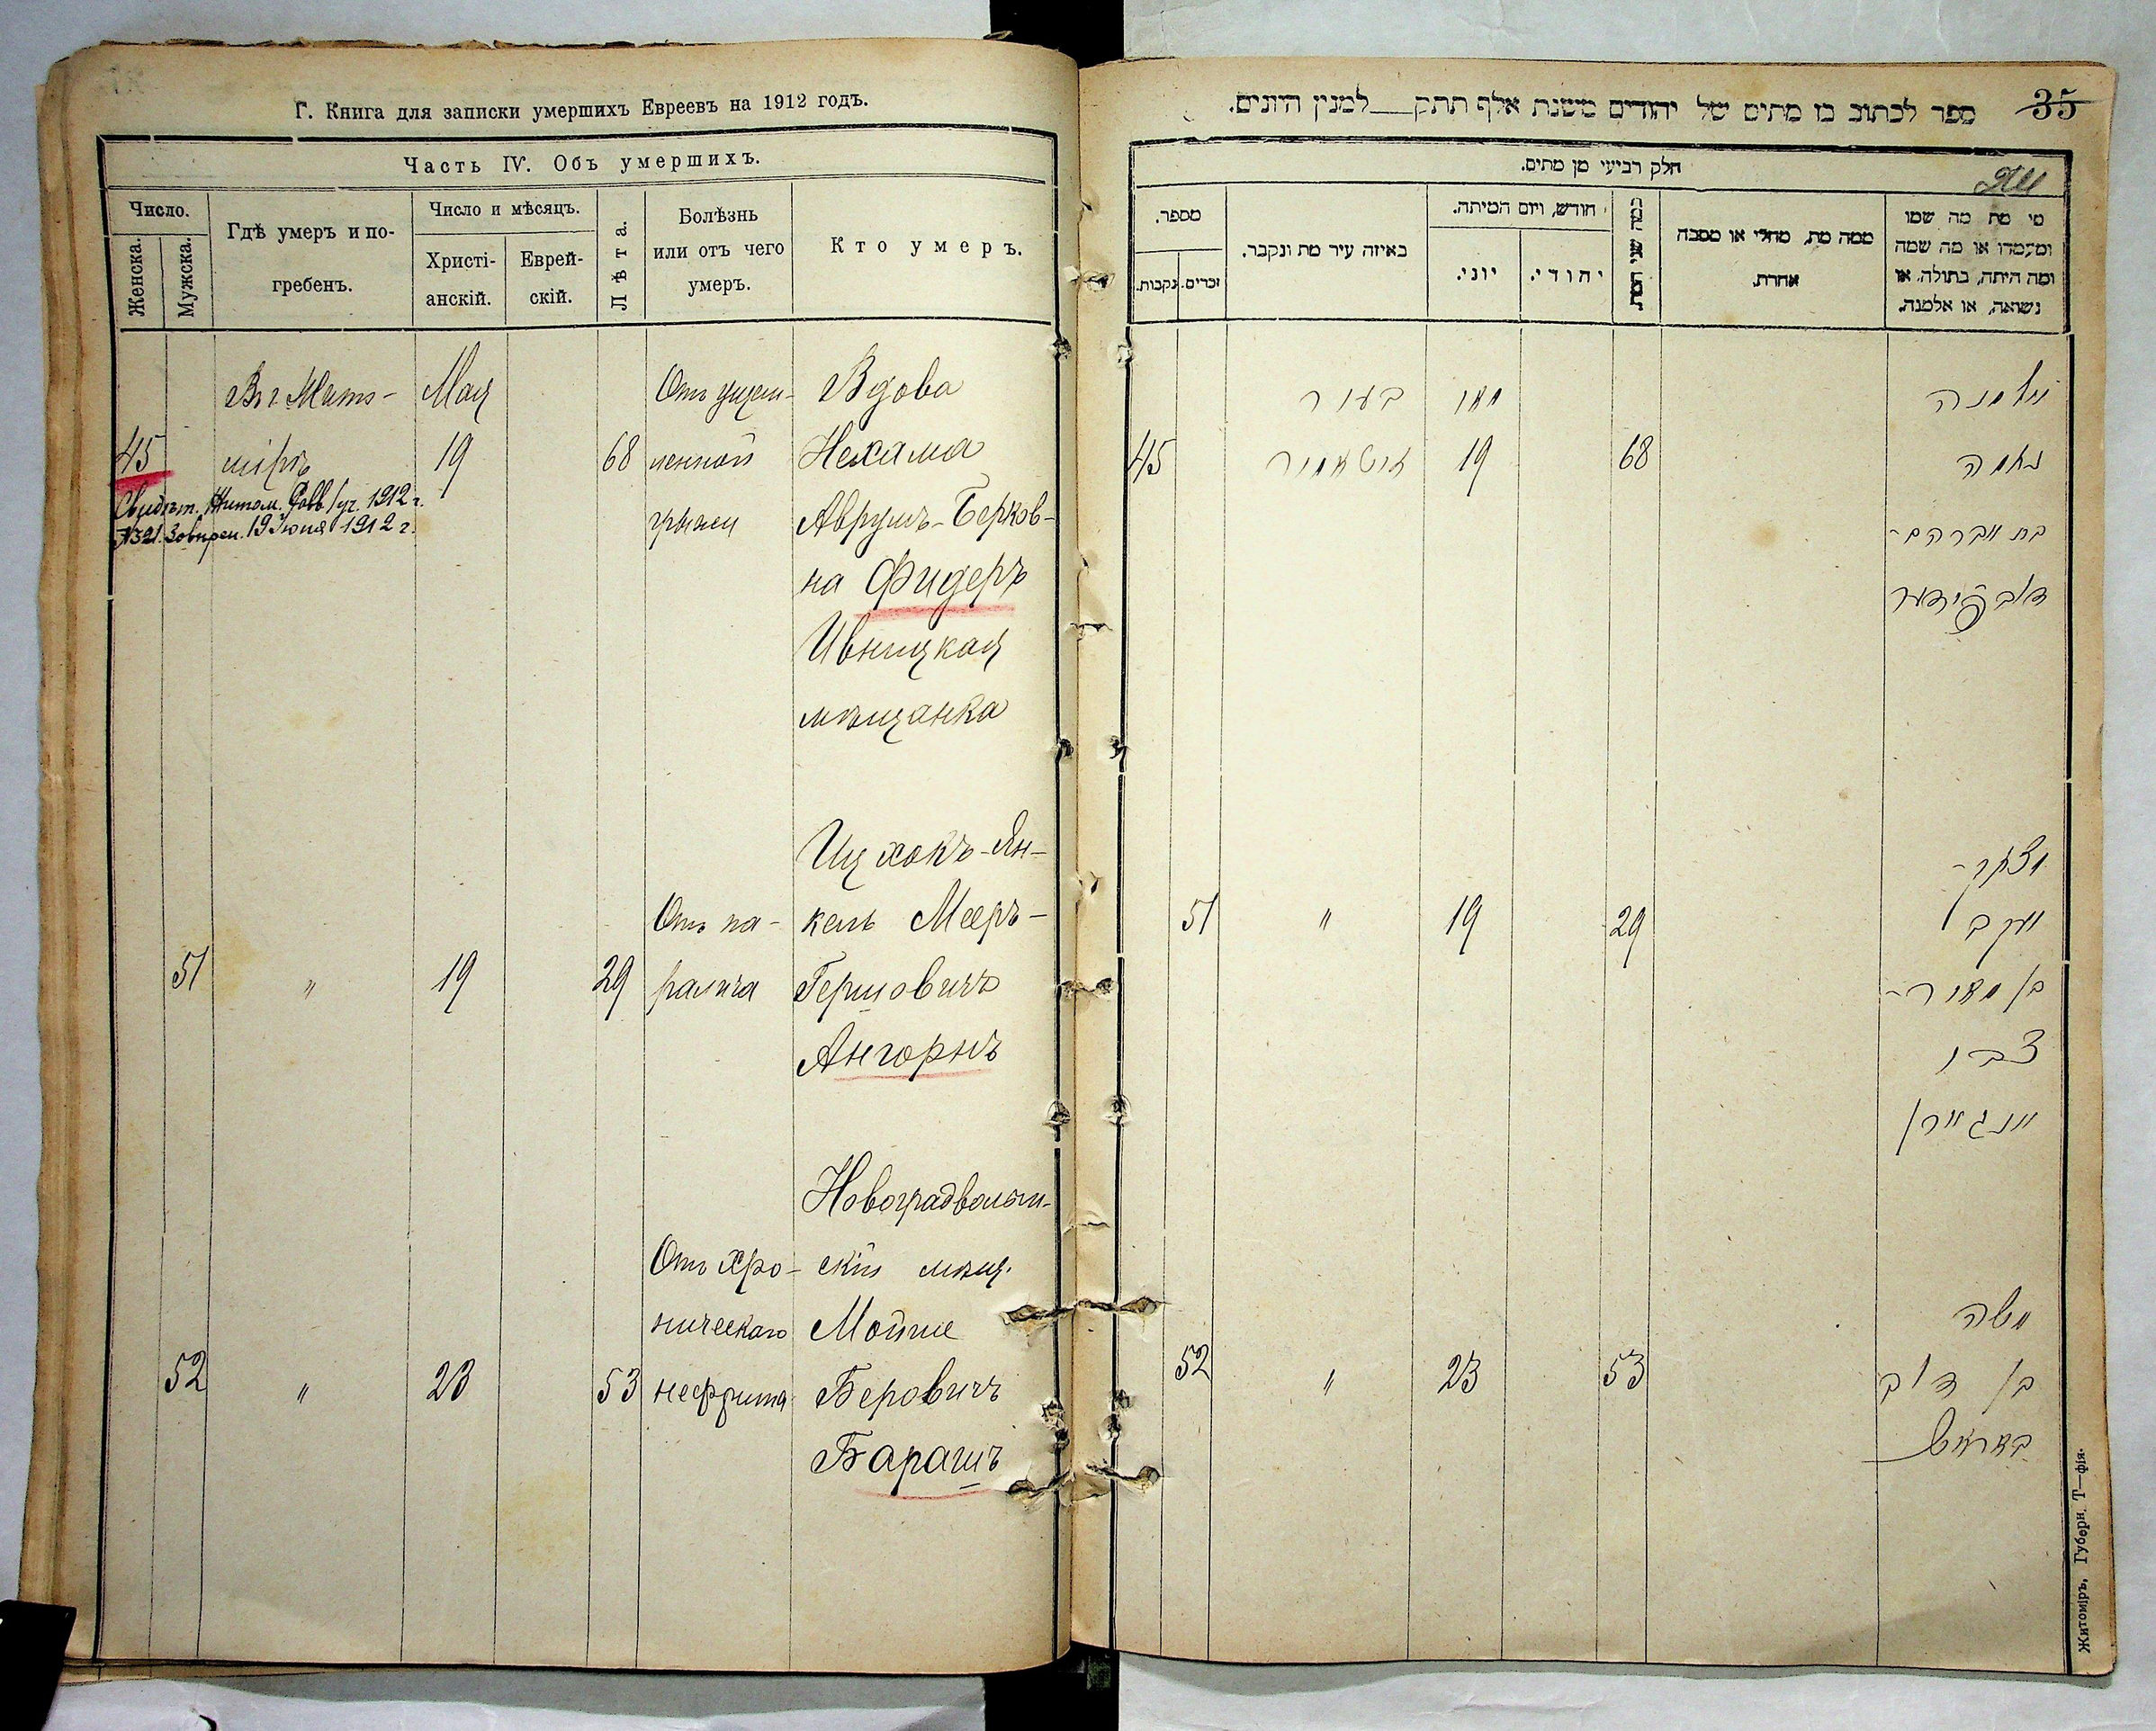 Г. Книга для записки умершихъ Евреевъ на 1912 годъ.
Часть IV. Объ умершихъ.
Число.
Женска.
Мужска.
Гдѣ умеръ и по-
гребенъ.
Число и мѣсяцъ.
Христі-
анскій.
Еврей-
скій.
Лѣта.
Болѣзнь
или отъ чего
умеръ.
Кто умеръ.
Въ г. Жито-
міръ
Мая
45
19
68
Отъ ущем-
ленной
грыжи
Вдова
Нехама
Аврумъ-Берков-
на Фидеръ
Ивницкая
мѣщанка
1912 г.
19 Іюня 1912 г.
51
"
19
29
Отъ па-
ралича
Ицхокъ-Ян-
кель Мееръ-
Гершовичъ
Ангорнъ
52
"
23
53
Отъ хро-
ническаго
нефрита
Новоградволын-
скій мѣщ.
Мойше
Беровичъ
Барашъ
35
ספר לכתוב בו מתים של יהודים משנת אלף תתק__למנין היונים.
חלק רביעי מן מתים.
מספר.
נקבות.
זכרים.
באיזה עיר מת ונקבר.
חודש, ויום המיתה.
יוני.
יהודי.
כמה שני המת.
ממה מת, מחלי או מסבה
אחרת.
מי מת מה שמו
ומעמדו או מה שמה
ומה היתה, בתולה, או
נשואה, או אלמנה.
45
בעיר
זיטאמיר
מאי
19
68
אלמנה
נחמה
בת אברהם-
דוב פידער
51
"
19
29
יצחק-
יעקב
בן מאיר-
צבי
אנגארן
52
"
23
53
משה
בן דוב
באראש
Житоміръ, Губерн. Т—фія.